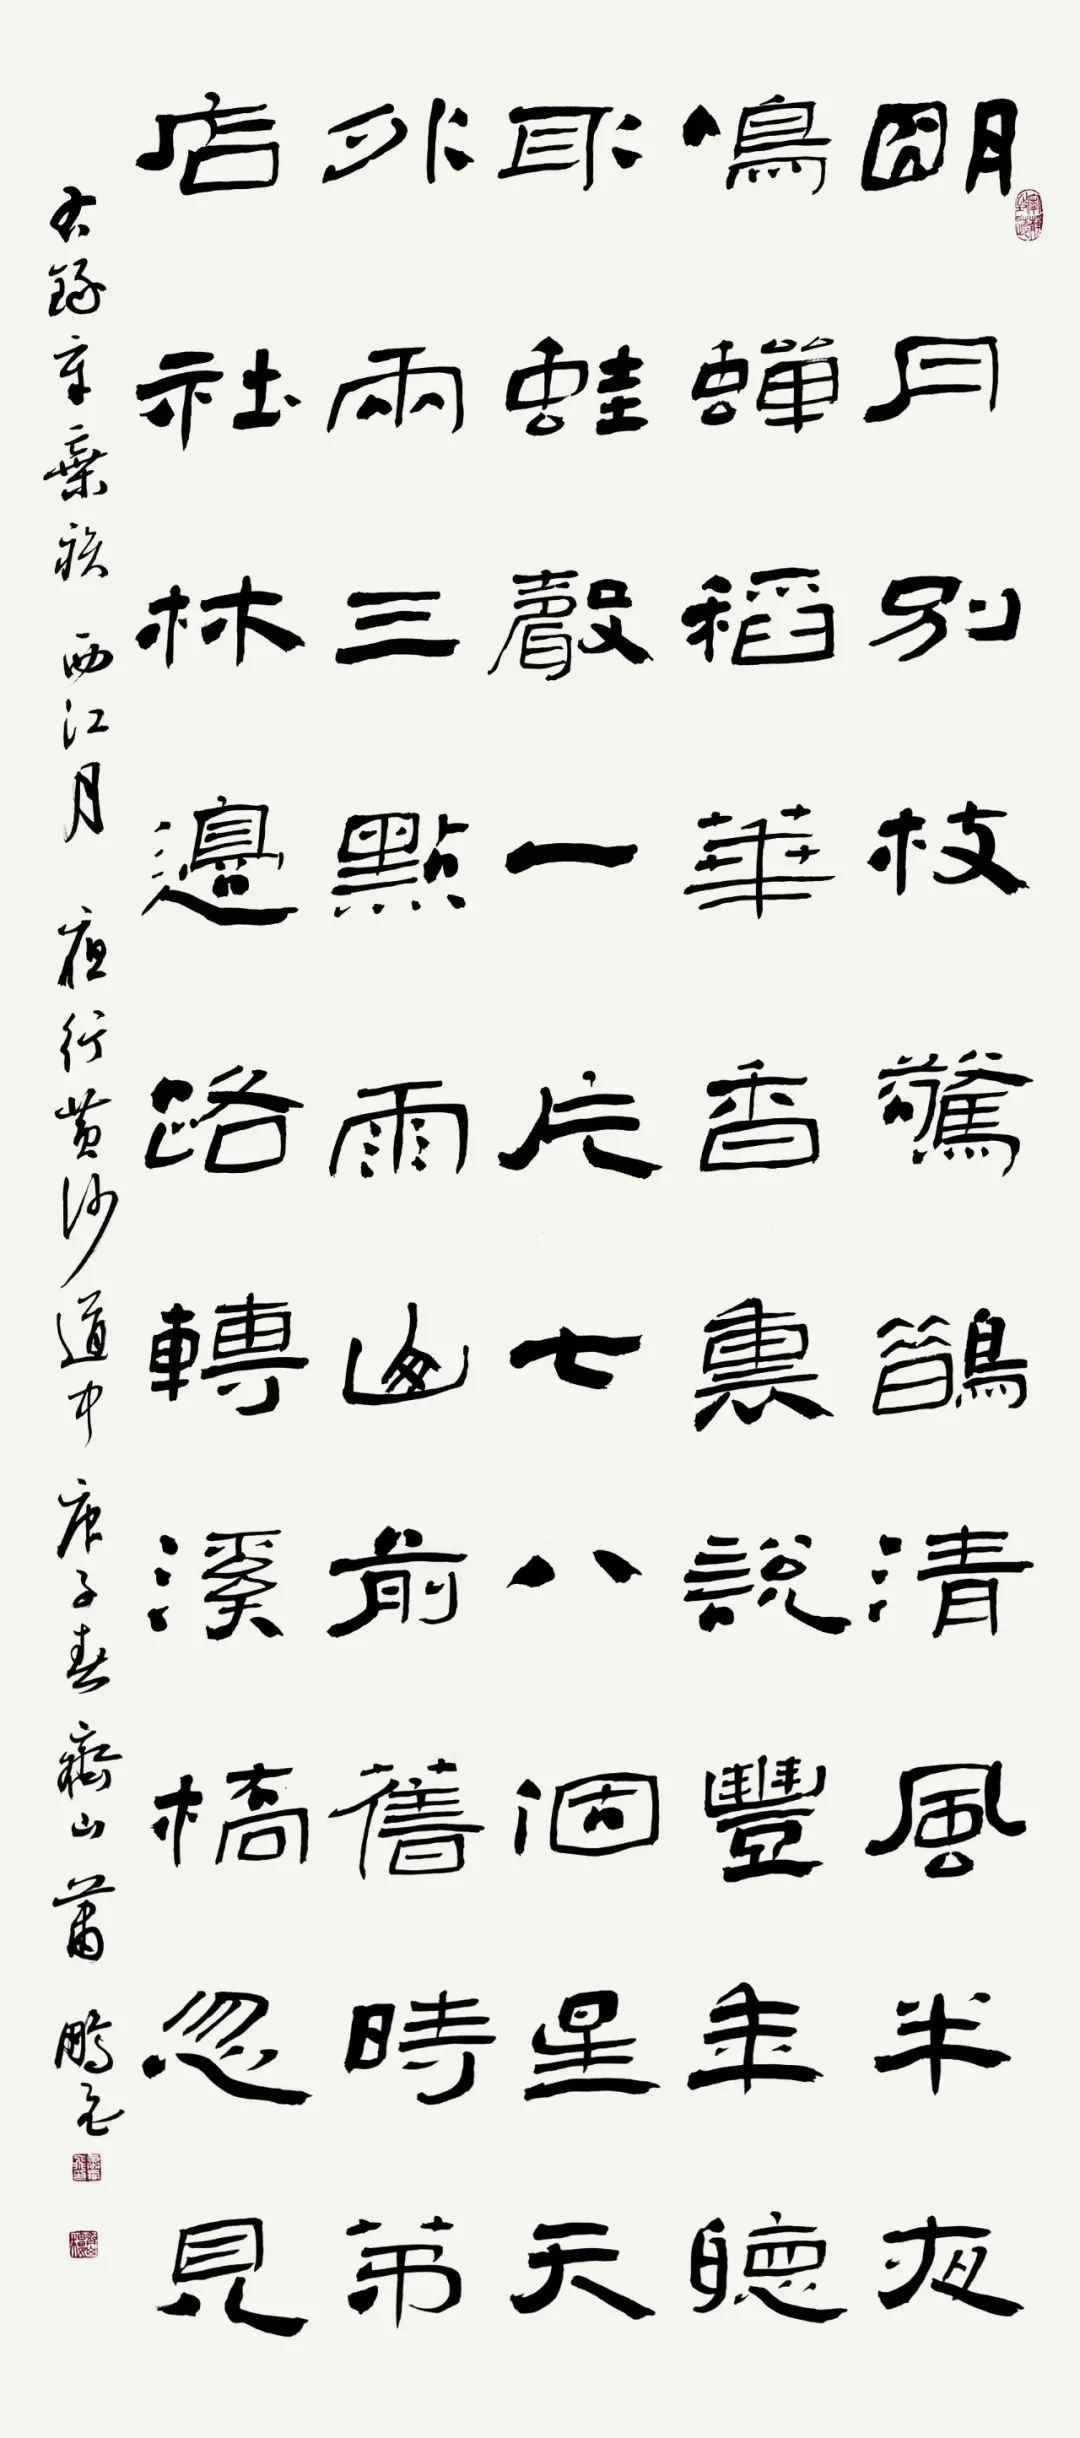 明月別枝驚鵲清風半夜
鳴蟬稻華香裏說豐年聽
取蛙聲一片七八個星天
外兩三點雨山前舊時茅
店社林邊路轉溪橋忽見
右錄辛棄疾 西江月 夜行黃沙道中 庚子春 山蕭鵬